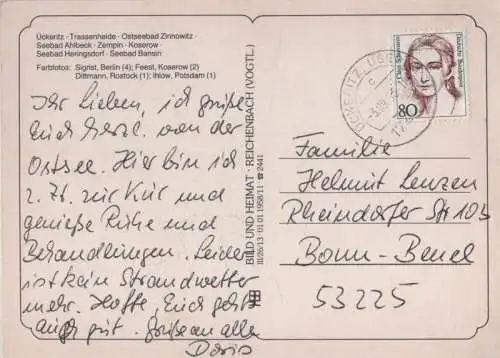 Ückeritz · Trassenheide · Ostseebad Zinnowitz
Seebad Ahlbeck · Zempin · Koserow
Seebad Heringsdorf · Seebad Bansin
Farbfotos: Sigrist, Berlin (4); Feest, Koserow (2)
Dittmann, Rostock (1); Ihlow, Potsdam (1)
Ihr Lieben, ich grüße
Euch herzl. von der
Ostsee. Hier bin ich
z. Zt. zur Kur und
genieße Ruhe und
Behandlungen. Leider
ist kein Strandwetter
mehr. Hoffe, Euch geht's
auch gut. Grüße an alle
Doris
BILD UND HEIMAT · REICHENBACH (VOGTL.)
III/26/13 01 01 1958/11 ☎ 2441
80
Deutsche Bundespost
Clara Schumann
ÜCKERITZ, USEDOM
c
Familie
Helmut Lenzen
Rheindorfer Str 105
Bonn-Beuel
53225